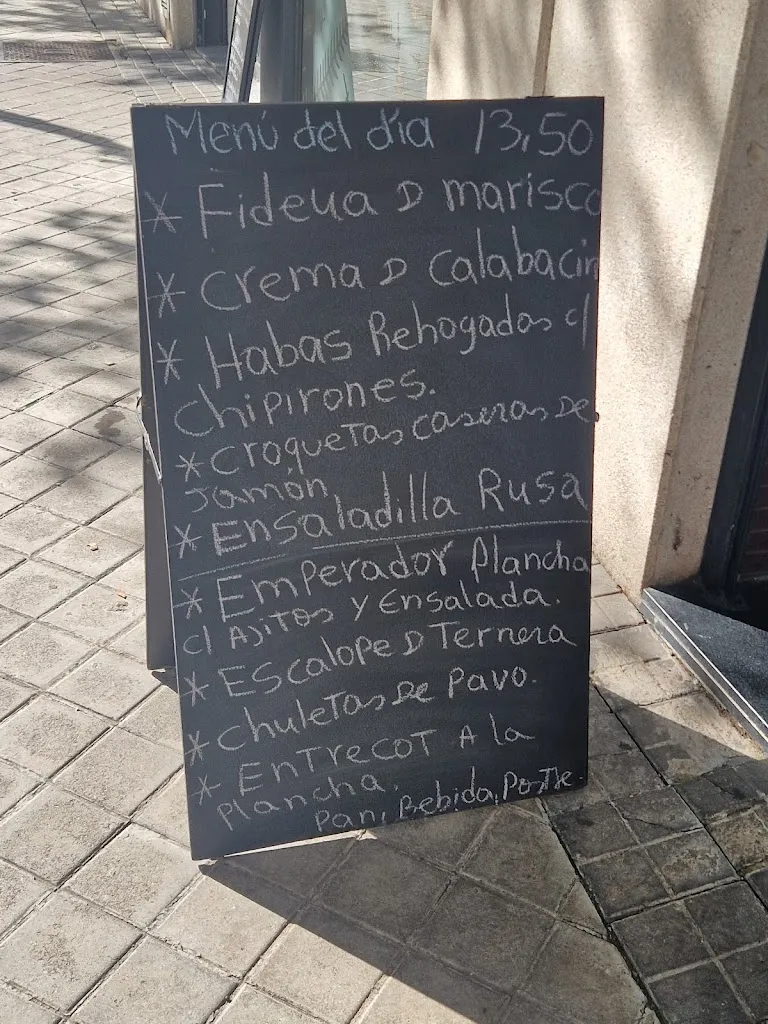 Menú del día 13,50
* Fideua D marisco
* Crema D Calabacin
* Habas Rehogadas c/
chipirones.
* croquetas caseras De
Jamón
* Ensaladilla Rusa
* Emperador Plancha
c/ Ajitos y Ensalada.
* Escalope D Ternera
* chuletas De Pavo.
* Entrecot A la
plancha.
Pan, Bebida, Postre.